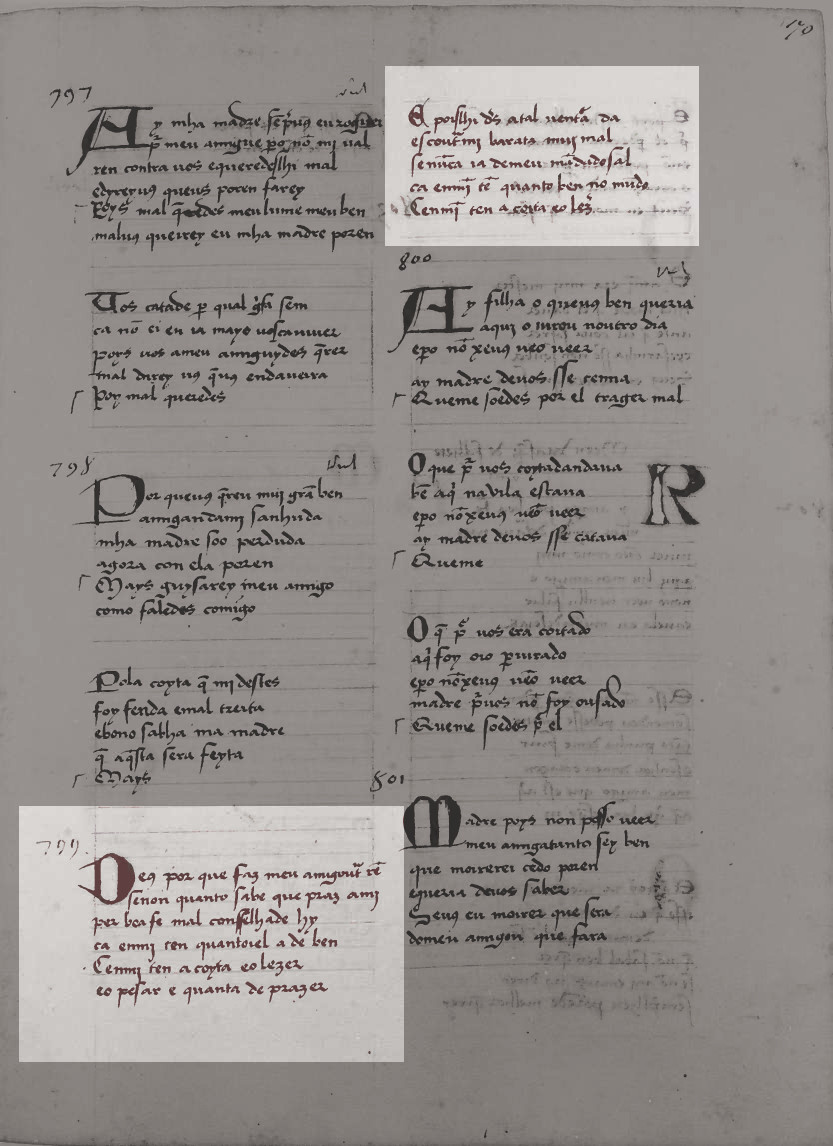 170
797
Ay mha madre sẽpr̃vus eu roguei
pr̃ meu amigue pero nõ mi val
ren contra vos equeredeslhi mal
edireyvus queus poren farey
Poys mal q̃redes meu lume meu ben
malvus queirey eu mha madre poren
Vos catade per qual guisa sem
ca nõ ei eu ia mays voscaviver
poys vos ameu amiguydes q̃rer
mal direy vus q̃vus endaveirra
Poy mal queredes
798
Por quevus q̃reu mui grã ben
amigandami sanhuda
mha madre soo perduda
agora con ela poren
Mays guysarey meu amigo
como faledes comigo
Pola coyta q̃ mi destes
foy ferida e mal treita
ebeno sabha ma madre
q̃ aq̃sta sera feyta
Mays
799
Deus por que faz meu amigoutr̃ rẽ
senon quanto sabe que praz ami
per boa fe mal consselhade hy
ca enmi ten quantoiel a de ben
Cenmi ten a coyta eo lezer
eo pesar e quanta de prazer
E poislhi ds̃ atal ventr̃a da
escoutrãmi barata mui mal
se nũca ia demeu mãdado sal
ca enmi tẽ quanto ben no mũdo
Cenmĩ ten a coita eo lez̃
800
Ay filha o quevus ben queria
aqui o iurou noutro dia
epo nõ xevus veo veer
ay madre devos sse temia
Queme soedes por el trager mal
O que pr̃ vos coytadandava
bẽ aqi na vila estava
epo nõ xevus veo veer
ay madre devos sse catava
Queme
R
O q̃ pr̃ vos era coitado
aqi foy oio pirurado
epo nõ xevus vẽo veer
madre pr̃vos nõ foy ousado
Queme soedes pr̃ el
801
Madre poys non posso veer
meu amigatanto sey ben
que morrerei cedo poren
equeria devos saber
Seus eu morrer que sera
domeu amigou que fara